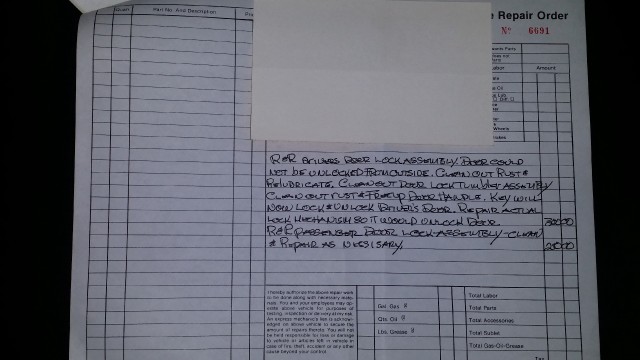 Quan. Part No. And Description
e Repair Order
Nº 6691
Amount
R&R DRIVERS DOOR LOCK ASSEMBLY. DOOR COULD
NOT BE UNLOCKED FROM OUTSIDE. CLEAN OUT RUST &
RELUBRICATE. CLEAN OUT DOOR LOCK TUMBLER ASSEMBLY
CLEAN OUT RUST & FREE UP DOOR HANDLE. KEY WILL
NOW LOCK & UNLOCK DRIVER'S DOOR. REPAIR ACTUAL
LOCK MECHANISM SO IT WOULD UNLOCK DOOR.
R&R PASSENGER DOOR LOCK ASSEMBLY - CLEAN
& REPAIR AS NESSISARY.
I hereby authorize the above repair work
to be done along with necessary mate-
rials. You and your employees may op-
erate above vehicle for purposes of
testing, inspection or delivery at my risk.
An express mechanics lien is acknowl-
edged on above vehicle to secure the
amount of repairs thereto. You will not
be held responsible for loss or damage
to vehicle or articles left in vehicle in
case of fire, theft, accident or any other
cause beyond your control.
Gal. Gas @
Qts. Oil @
Lbs. Grease @
Total Labor
Total Parts
Total Accessories
Total Sublet
Total Gas-Oil-Grease